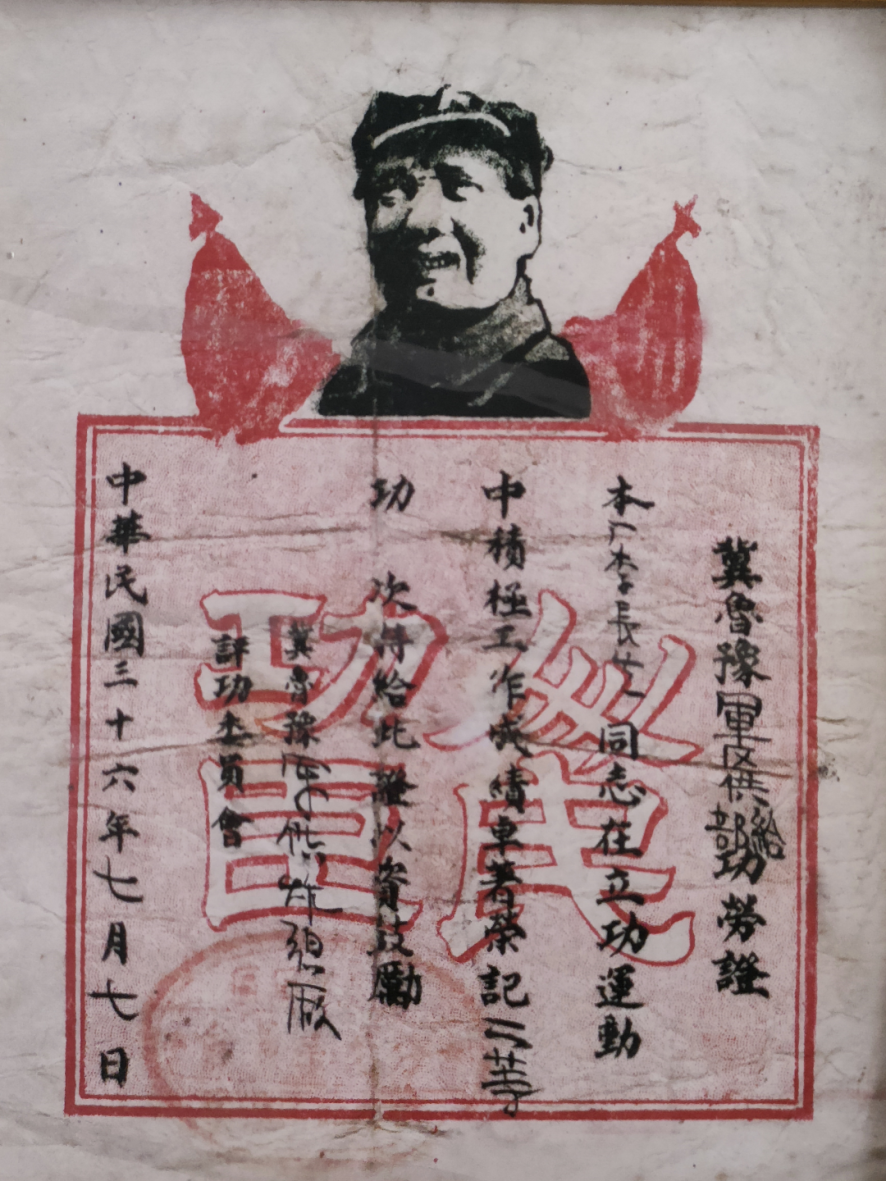 冀魯豫軍区供給部功勞證
本厂李長廿一同志在立功運動
中積極工作成績卓著榮記二等
功 次特給此證以資鼓勵
冀魯豫軍供炸弹厰
評功委員會
中華民國三十六年七月七日
人民
功臣